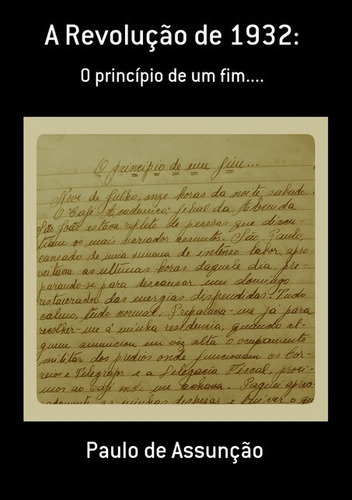 A Revolução de 1932:
O princípio de um fim....
O princípio de um fim...
Nove de julho, onze horas da noite, sabado...
O Café Academico, jusual da Avenida
São João estava repleto de pessoas que discu-
tiam os mais variados assuntos. São Paulo,
cansado de uma semana de intenso labor, apro-
veitava as ultimas horas daquele dia, pre-
parando-se para descansar num domingo
restaurador das energias despendidas. Tudo
calmo, tudo normal. Preparava-me já para
recolher-me á minha residencia, quando al-
guem anunciou em voz alta o ocupamento
militar dos predios onde funcionam os Cor-
reios e Telegrafos e a Delegacia Fiscal, proxi-
mos ao café onde me achava. Paguei apres-
sadamente as minhas despesas e
Paulo de Assunção